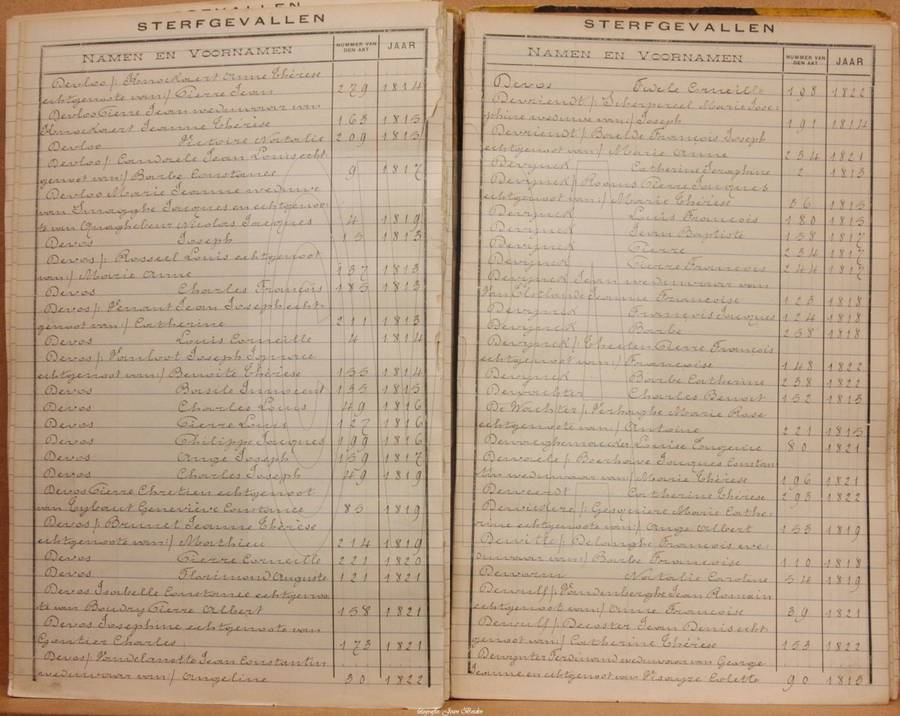 STERFGEVALLEN
NAMEN EN VOORNAMEN NUMMER VAN DEN AKT JAAR
Devloo / Knockaert Anne Thérèse
echtgenoote van / Pierre Jean 279 1814
Devloo Pierre Jean weduwaar van
Knockaert Jeanne Thérèse 163 1815
Devloo Victoire Natalie 209 1815
Devloo / Jean Louis echt-
genoot van / Barbe Constance 9 1817
Devloo Marie Jeanne weduwe
van Jacques en echtgenoo-
te van Quaghebeur Nicolas Jacques 4 1819
Devos Joseph 15 1813
Devos / Rosseel Louis echtgenoot
van / Marie Anne 137 1813
Devos Charles François 185 1813
Devos / Jean Joseph echt-
genoot van / Catherine 211 1813
Devos Louis Corneille 4 1814
Devos / Joseph Ignace
echtgenoot van / Benoite Thérèse 155 1814
Devos Basile Innocent 135 1815
Devos Charles Louis 49 1816
Devos Pierre Louis 127 1816
Devos Philippe Jacques 199 1816
Devos Ange Joseph 159 1817
Devos Charles Joseph 49 1819
Devos Pierre Chretien echtgenoot
van Geneviève Constance 85 1819
Devos / Brunet Jeanne Thérèse
echtgenoote van / Mathieu 214 1819
Devos Pierre Corneille 221 1820
Devos Florimond Auguste 121 1821
Devos Isabelle Constance echtgenoo-
te van Boudry Pierre Albert 158 1821
Devos Josephine echtgenoote van
Gantier Charles 173 1821
Devos / Vandelanotte Jean Constantin
weduwaar van / Angeline 50 1822
STERFGEVALLEN
NAMEN EN VOORNAMEN NUMMER VAN DEN AKT JAAR
Devos Fidele Corneille 198 1822
Devriendt / Scherpereel Marie Jose-
phine weduwe van / Joseph 191 1814
Devriendt / François Joseph
echtgenoot van / Marie Anne 254 1821
Devynck Catherine Seraphine 2 1813
Devynck / Pierre Jacques
echtgenoot van / Marie Thérèse 56 1815
Devynck Louis François 180 1815
Devynck Jean Baptiste 158 1817
Devynck Pierre 234 1817
Devynck Pierre François 244 1817
Devynck Jean weduwaar van
Jeanne Françoise 123 1818
Devynck François Jacques 124 1818
Devynck Barbe 258 1818
Devynck / Pierre François
echtgenoot van / Françoise 148 1822
Devynck Barbe Catherine 238 1822
Dewachter Charles Benoit 152 1813
De Wachter / Verhaeghe Marie Rose
echtgenoote van / Antoine 221 1815
Dewaeghenaecker Louise Eugenie 80 1821
Dewaele / Boerhave Jacques Constan-
tin weduwaar van / Marie Thérèse 196 1821
Deweerdt Catherine Thérèse 293 1822
/ Gesquiere Marie Cathe-
rine echtgenoote van / Ange Albert 153 1819
Dewitte / Delanghe François we-
duwaar van / Barbe Françoise 110 1818
Natalie Caroline 54 1819
Dewulf / Vandenberghe Jean Romain
echtgenoot van / Anne Françoise 39 1821
Dewulf / Decoster Jean Denis echt-
genoot van / Catherine Thérèse 153 1822
Dewynter Ferdinand weduwaar van George
Jeanne en echtgenoot van Colette 90 1813